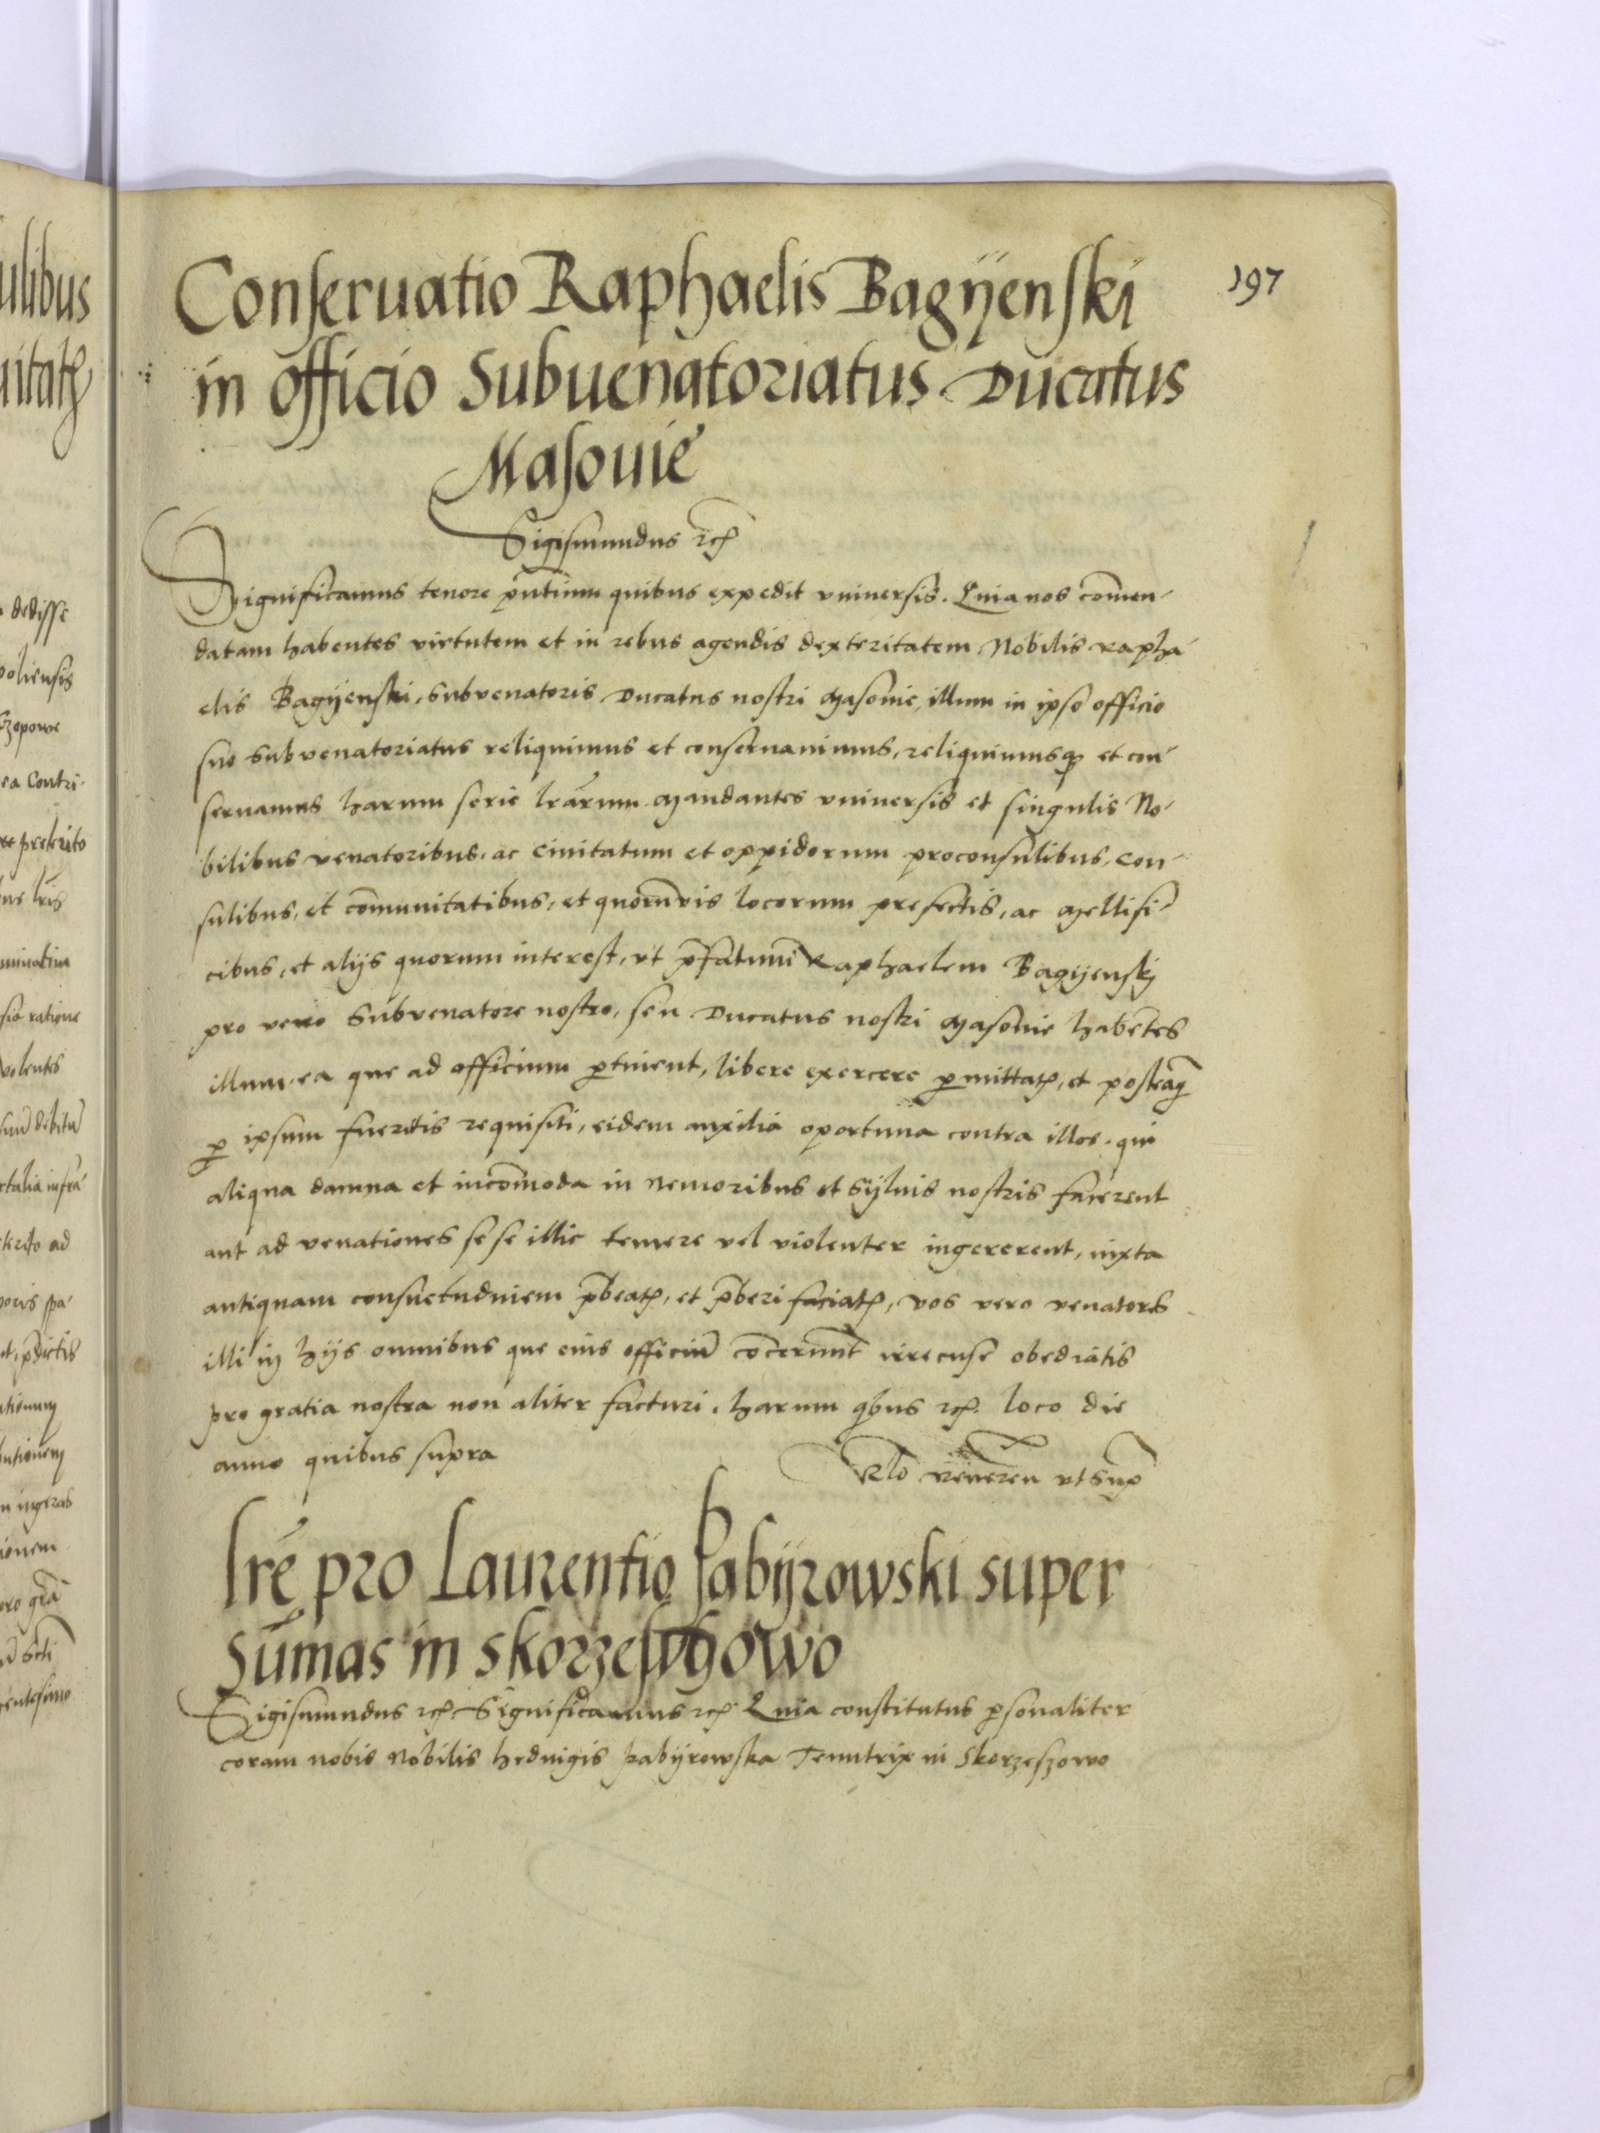 197
Conseruatio Raphaelis Bagÿenski
in officio Subuenatoriatus Ducatus
Masouie
Sigismundus rc̃
Significamus tenore p̃ntium quibus expedit vniuersis. Quia nos com̃en-
datam habentes virtutem et in rebus agendis dexteritatem Nobilis Rapha
elis Bagÿenski, Subvenatoris Ducatus nostri Masouie, illum in ipso officio
suo Subvenatoriatus reliquimus et conseruauimus, reliquimusq₃ et con-
seruamus harum serie lr̃arum. Mandantes vniuersis et singulis No-
bilibus venatoribus, ac ciuitatum et oppidorum proconsulibus, Con-
sulibus, et com̃unitatibus, et quorũvis locorum prefectis, ac Mellifi-
cibus, et alijs quorum interest, vt p̃fatum Raphaelem Bagÿenskj
pro vero Subvenatore nostro, seu Ducatus nostri Masouie habentes
illum ea que ad officium ꝑtinent, libere exercere ꝑmittatꝭ, et posteaq̃
ꝑ ipsum fueritis requisiti, eidem auxilia oportuna contra illos, qui
aliqua damna et incom̃oda in nemoribus et Sÿluis nostris facerent
aut ad venationes se se illic temere vel violenter ingererent, iuxta
antiquam consuetudinem p̃beatꝭ, et p̃beri faciatꝭ, vos vero venatores
illi in hijs omnibus que eius officiũ cõcernũt irrecuse obediatis
pro gratia nostra non aliter facturi. harum q̃bus rc̃. loco die
anno quibus supra
Rlo Reueren vt Sup̃
Lr̃e pro Laurentio Pabÿrowski super
Sum̃as in Skorzeszowo
Sigismundus rc̃ Significamus rc̃ Quia constitutus ꝑsonaliter
coram nobis Nobilis heduigis Pabÿrowska Tenutrix in Skorzeszowo